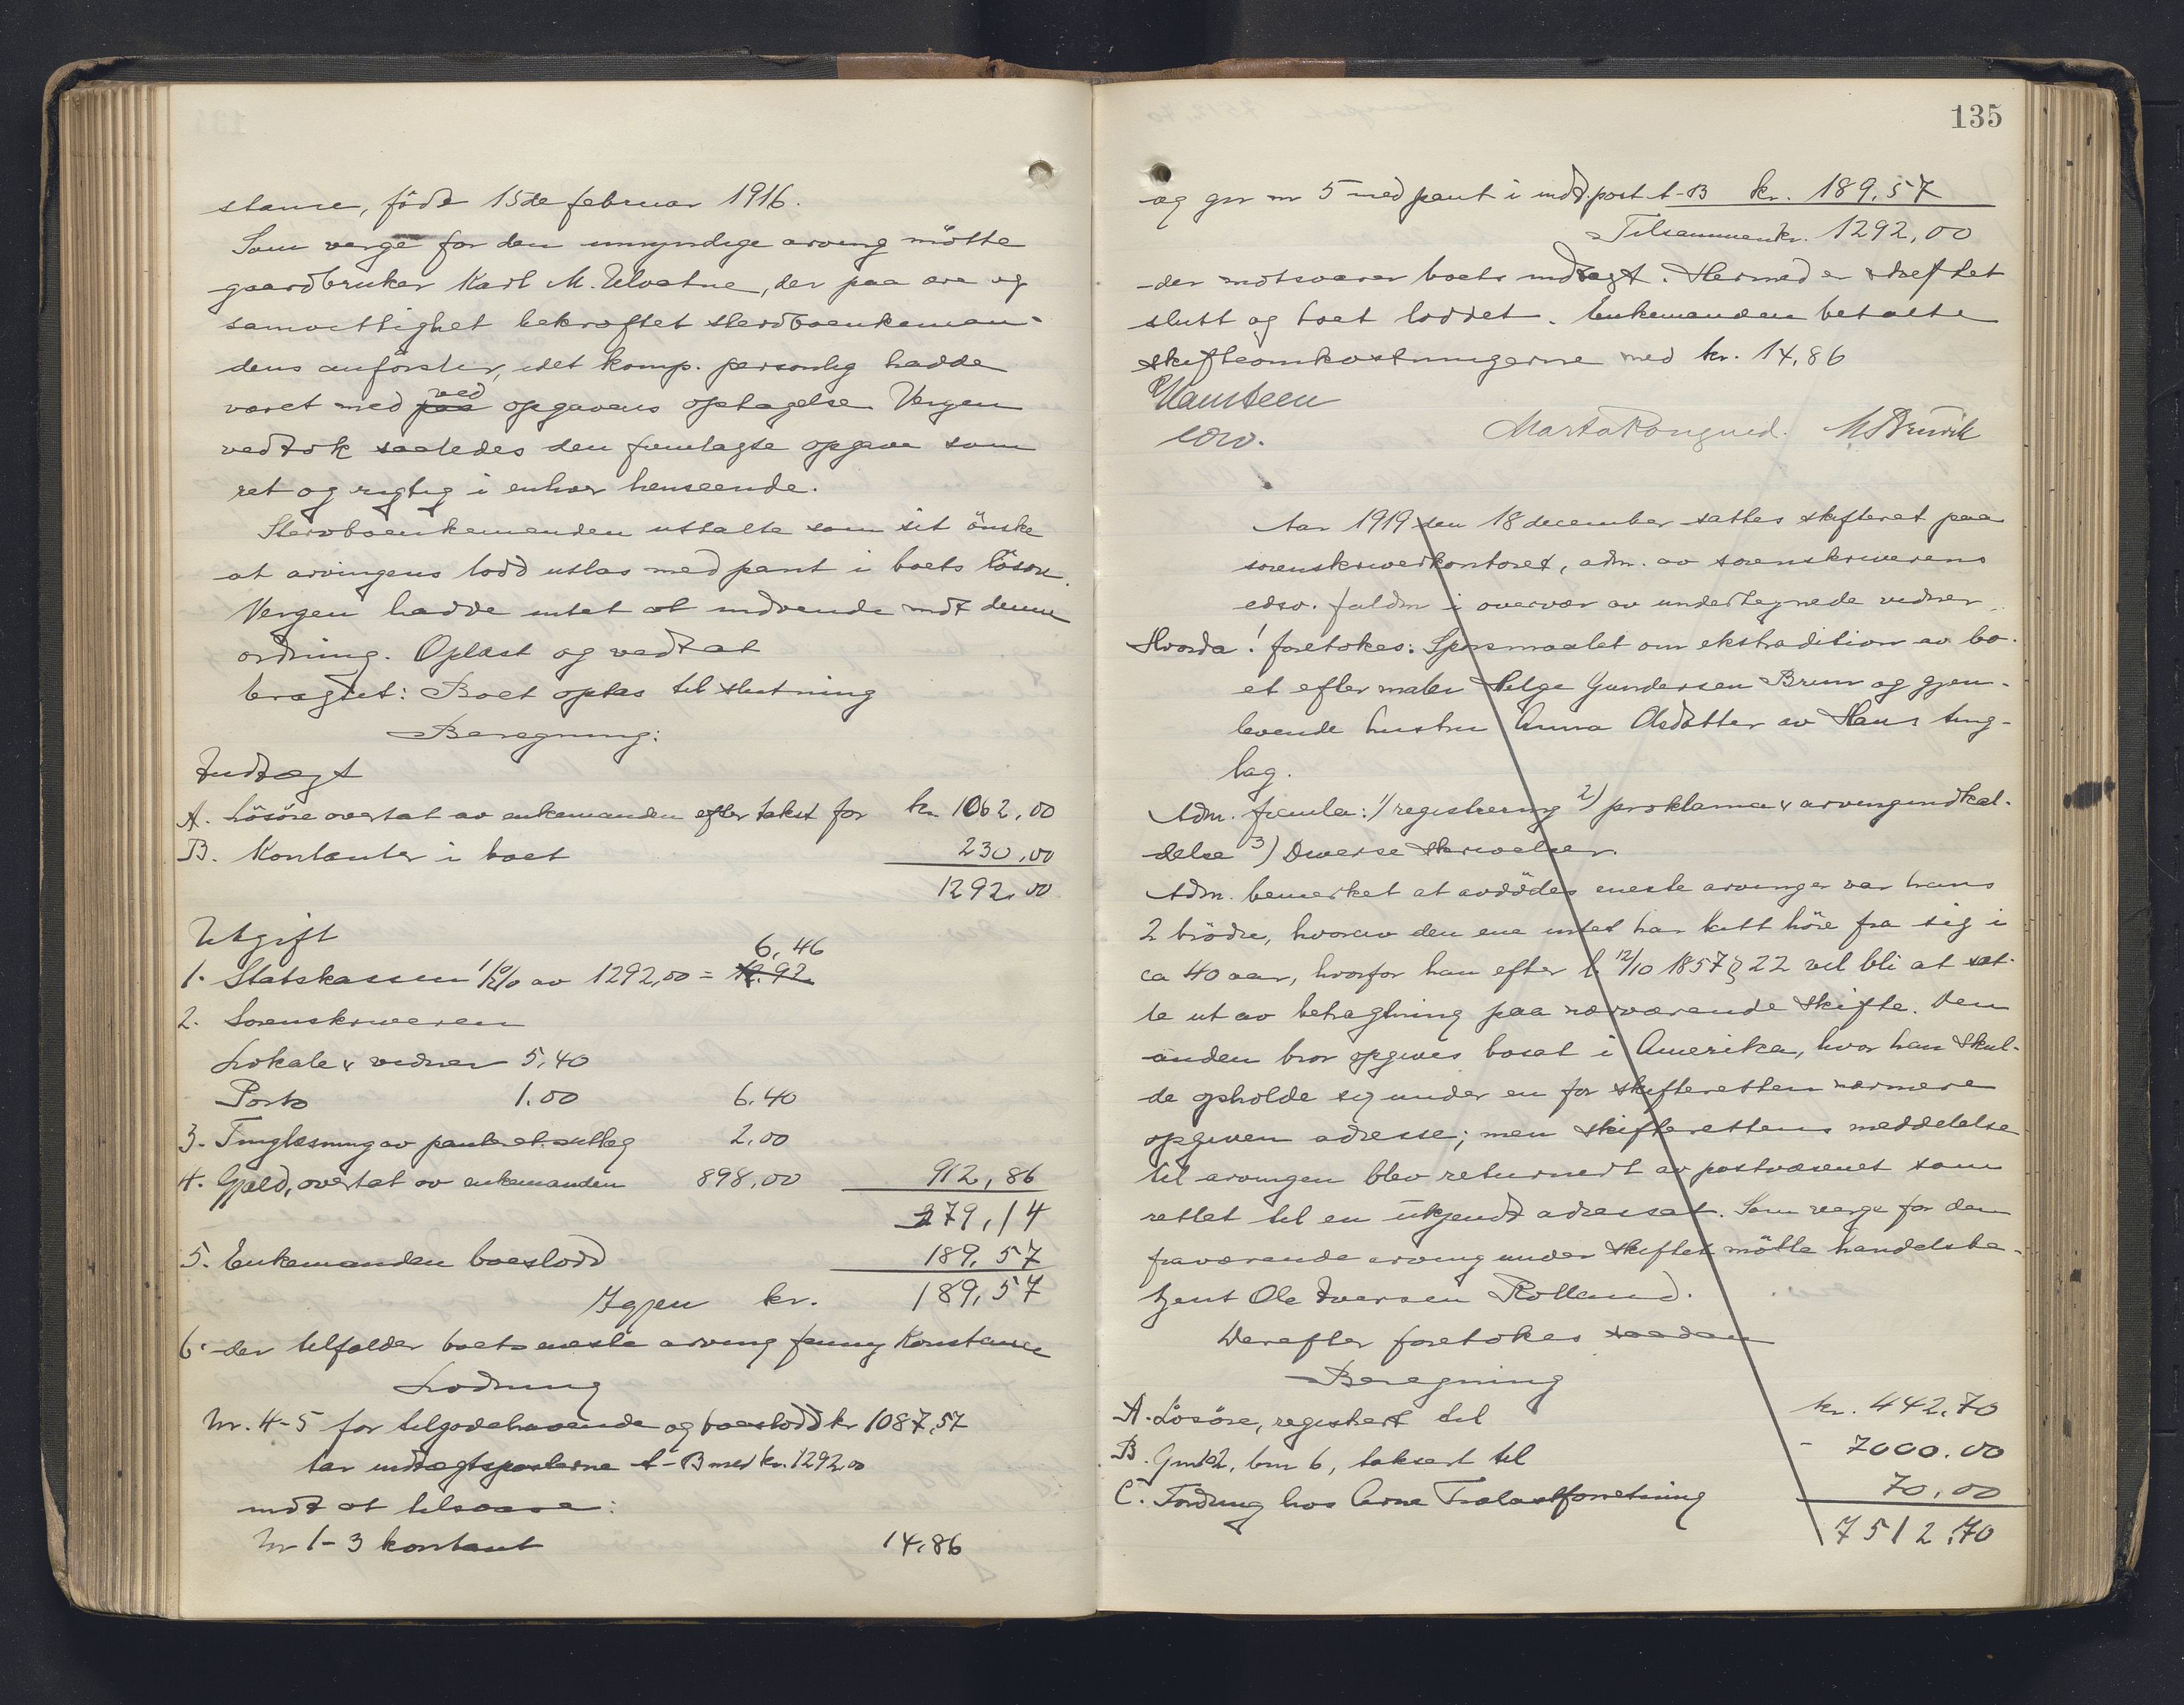 stance, född 15de februar 1916.
Som verge for den umyndige arving mötte
gaardbruker Karl M. Ulvatne, der paa ære og
samvittighet bekræftet stervboenkeman-
dens anförsler, idet komp. personlig hadde
været med ved opgavens optagelse. Vergen
vedtok saaledes den fremlagte opgave som
ret og rigtig i enhver henseende.
Stervboenkemanden uttalte som sit önske
at arvingens lodd utlæs med pant i boets lösöre.
Vergen hadde intet at indvende mot denne
ordning. Oplæst og vedtat
bragtet: Boet optas til slutning
Beregning:
Indtægt
A. Lösöre overtat av enkemanden efter takst for kr. 1062,00
B. Kontanter i boet 230,00
1292,00
Utgift
6,46
1. Statskassen 1/2% av 1292,00 = 12.92
2. Sorenskriveren
Lokale & vidner 5,40
Porto 1.00 6.40
3. Tinglæsning av panteret utlæg 2,00
4. Gjæld, overtat av enkemanden 898,00 912,86
379,14
5. Enkemanden boeslodd 189,57
Igjen kr. 189,57
6. der tilfalder boets eneste arving Jenny Konstance
Lodning
Nr. 4-5 for tilgodehavende og boeslodd kr 1087,57
tar indtægtsposterne A-B med kr. 1292,00
mot at tilsvare:
Nr 1-3 kontant 14,86
135
og gir nr 5 med pant i indt.post A-B kr. 189,57
Tilsammen kr. 1292,00
der motsvarer boets indtægt. Hermed er skiftet
slutt og boet loddet. Enkemanden betalte
skifteomkostningerne med kr. 14,86
Hansteen
edsv. Marta Rongved. M Bruvik
Aar 1919 den 18 december sattes skifteret paa
sorenskriverkontoret, adm. av sorenskriverens
edsv. fuldm i overvær av undertegnede vidner.
Hvorda! foretokes: Spørsmaalet om ekstradition av bo-
et efter maler Helge Gundersen Brun og gjen-
levende hustru Anna Olsdatter av Haus ting-
lag.
Adm. fremla: 1) registrering 2) proklama & arvingindkal-
delse 3) Diverse skrivelser.
Adm. bemerket at avdödes eneste arvinger var hans
2 brödre, hvorav den ene intet har latt höre fra sig i
ca 40 aar, hvorfor han efter l. 12/10 1857 § 22 vil bli at sæt-
te ut av betragtning paa nærværende skifte. Den
anden bror opgives bosat i Amerika, hvor han skul-
de opholde sig under en for skifteretten nærmere
opgiven adresse; men skifterettens meddelelse
til arvingen blev returnert av postvæsenet som
rettet til en ukjendt adressat. Som verge for den
fraværende arving under skiftet mötte handelsbe-
tjent Ole Iversen Rolland.
Derefter foretokes saadan
Beregning
A. Lösöre, registrert til kr. 442,70
B. Gnr 12, bnr 6, taksert til - 7000.00
C. Fordring hos Arne Trælastforretning 70,00
7512,70